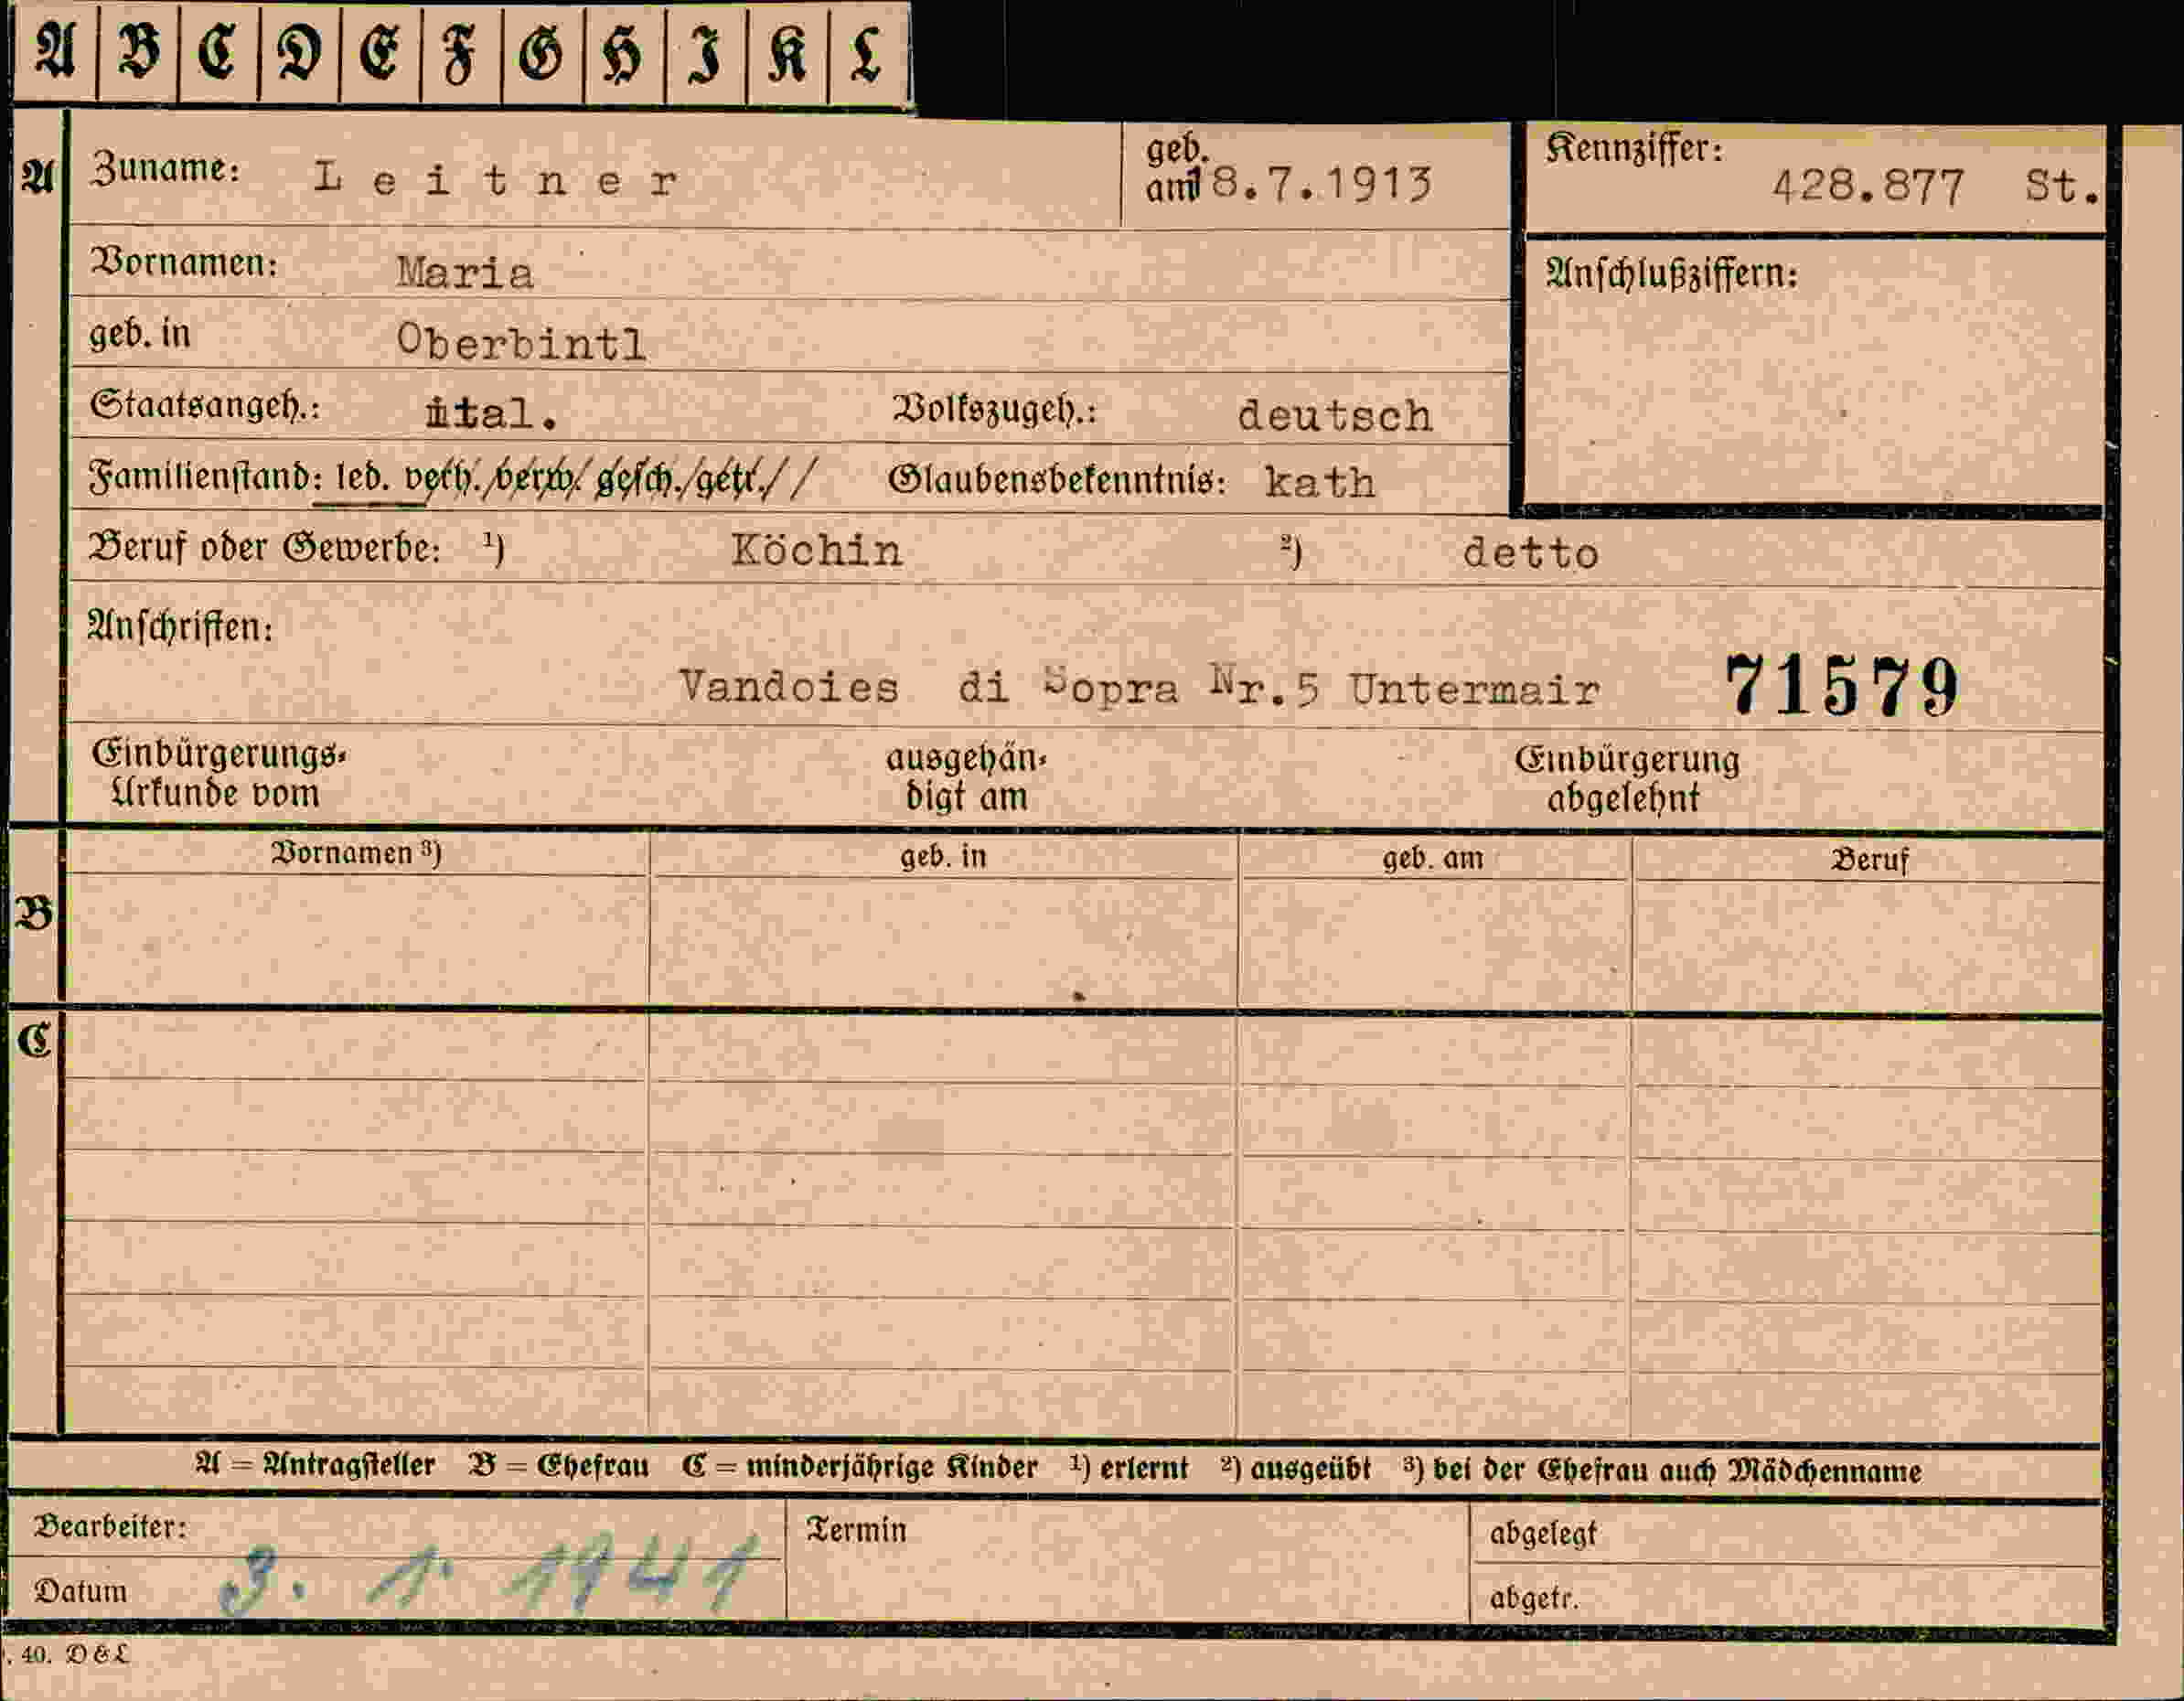 A B C D E F G H I K L
A Zuname: Leitner geb. am 18.7.1913 Kennziffer: 428.877 St.
Vornamen: Maria Anschlußziffern:
geb. in Oberbintl
Staatsangeh.: ital. Volkszugeh.: deutsch
Familienstand: led. verh. verw. gesch. getr. Glaubensbekenntnis: kath
Beruf oder Gewerbe: ¹) Köchin ²) detto
Anschriften:
Vandoies di Sopra Nr.5 Untermair 71579
Einbürgerungs- ausgehän- Einbürgerung
Urkunde vom digt am abgelehnt
Vornamen ³) geb. in geb. am Beruf
B
C
A = Antragsteller B = Ehefrau C = minderjährige Kinder ¹) erlernt ²) ausgeübt ³) bei der Ehefrau auch Mädchenname
Bearbeiter: Termin abgelegt
Datum 3. 1. 1941 abgetr.
. 40. D & L